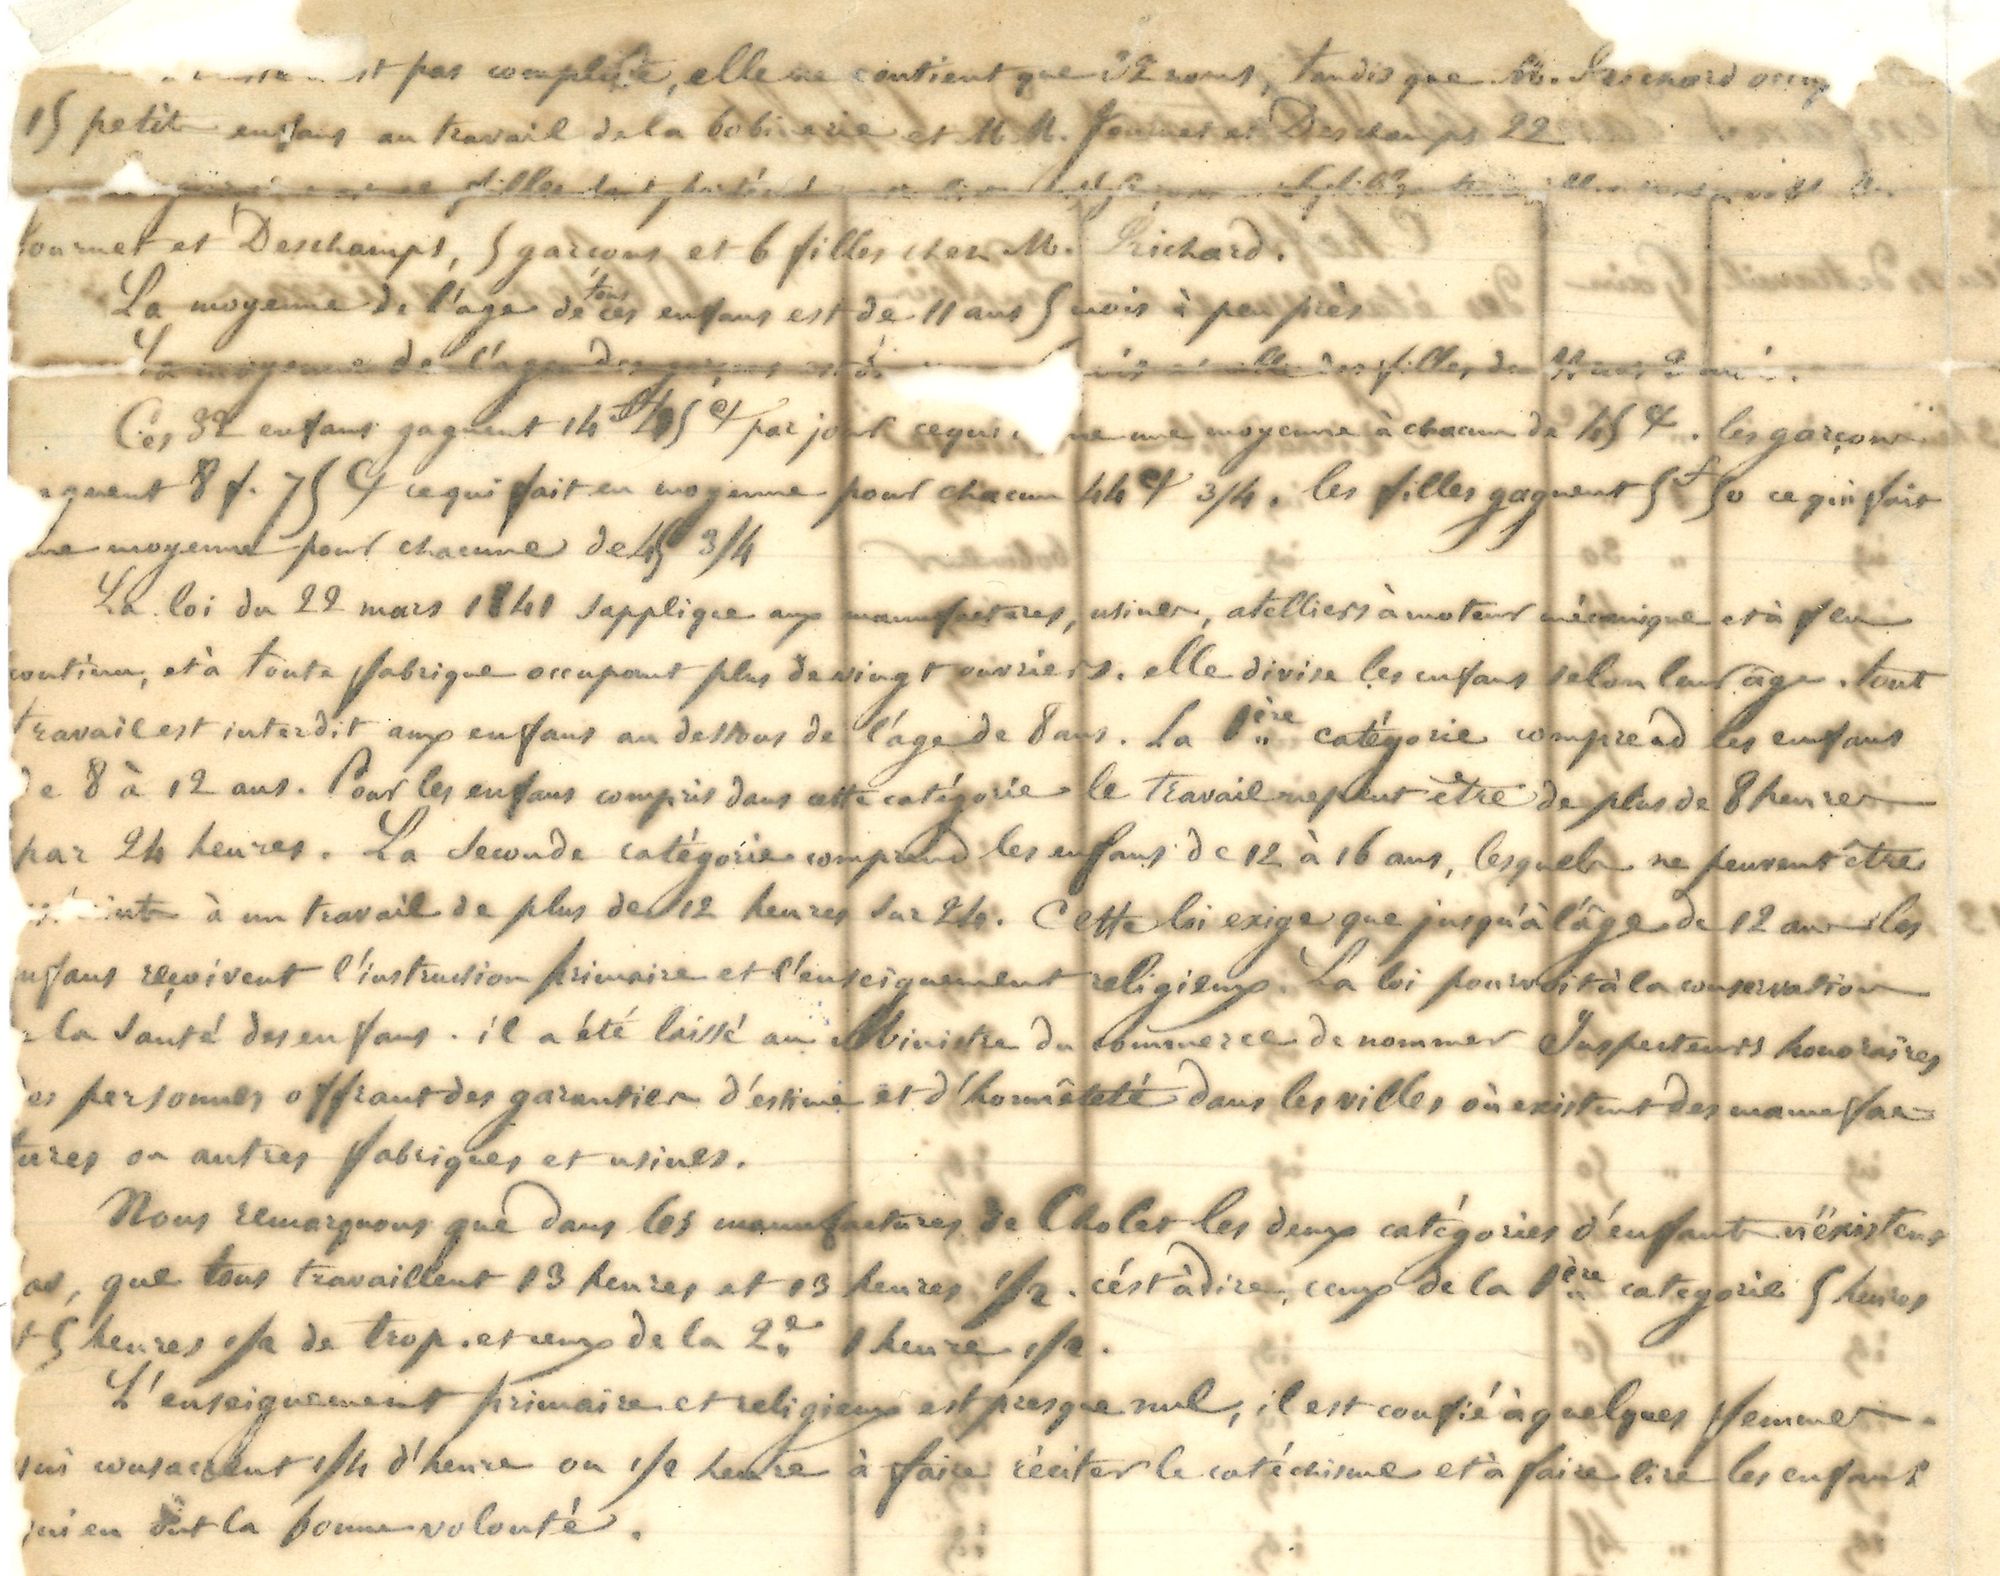 pas complète, elle ne contient que 32 noms, tandis que M. Richard occup
15 petits enfans au travail de la bobinerie et M M. Fournet et Deschamps 22
filles
ournet et Deschamps, 5 garçons et 6 filles chez M. Richard.
La moyenne de l'age de tous ces enfans est de 11 ans 5 mois à peu près
La moyenne de l'age des garçons est de celle des filles de 11 ans 2 mois.
Ces 32 enfans gagnent 14 f 25 c par jour ce qui ne une moyenne à chacun de 45 c. les garçons
agnent 8 f. 75 c ce qui fait en moyenne pour chacun 44 c 3/4. les filles gagnent 5 f 50 ce qui fait
ne moyenne pour chacune de 45 3/4
La loi du 22 mars 1841 sapplique aux manufactures, usines, atelliers à moteur mécanique et à feu
continu, et à toute fabrique occupant plus de vingt ouvriers. elle divise les enfans selon leur âge. tout
travail est interdit aux enfans au dessous de l'age de 8 ans. La 1ère catégorie comprend les enfans
de 8 à 12 ans. Pour les enfans compris dans cette catégorie le travail ne peut être de plus de 8 heures
par 24 heures. La seconde catégorie comprend les enfans de 12 à 16 ans, lesquels ne peuvent être
à un travail de plus de 12 heures sur 24. Cette loi exige que jusqu'à l'âge de 12 ans les
nfans reçoivent l'instruction primaire et l'enseignement religieux. La loi pourvoit à la conservation
la santé des enfans. il a été laissé au Ministre du commerce de nommer Inspecteurs honoraires
es personnes offrant des garanties d'estime et d'honnêteté dans les villes où existent des manufac
tures ou autres fabriques et usines.
Nous remarquons que dans les manufactures de Cholet les deux catégories d'enfants n'éxistent
as, que tous travaillent 13 heures et 13 heures 1/2. c'ést à dire, ceux de la 1ère catégorie 5 heures
t 5 heures 1/2 de trop. et ceux de la 2e 1 heure 1/2.
L'enseignement primaire et religieux est presque nul, il est confié à quelques femmes
qui consacrent 1/4 d'heure ou 1/2 heure à faire réciter le catéchisme et à faire lire les enfans
qui en ont la bonne volonté.